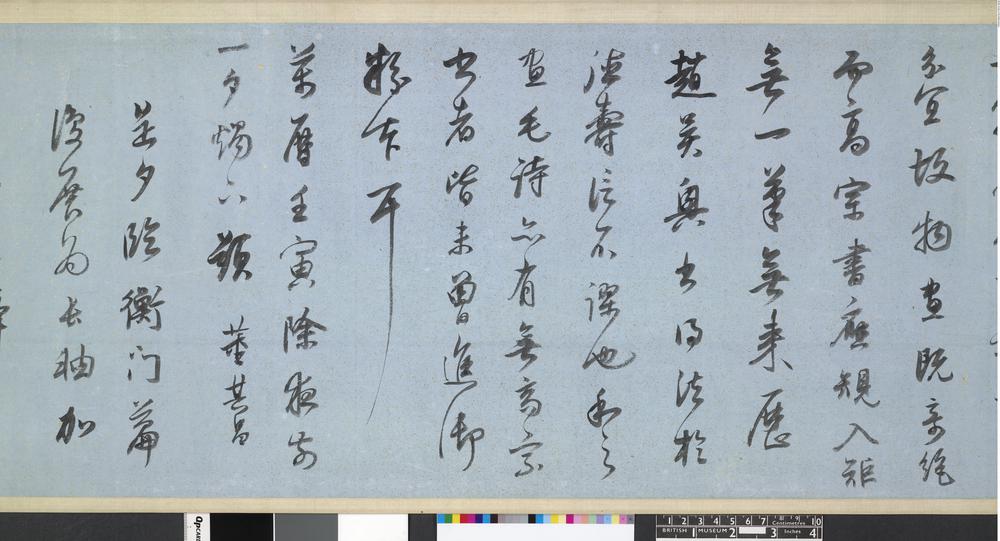 分宜故物畫既奇絕
而高宗書應規入矩
無一筆無來歷
趙吳興書得法於
德壽信不謬也和之
畫毛詩亦有無高宗
書者皆未曾進御
粉本耳
萬曆壬寅除夜前
一夕燭下題 董其昌
是夕臨衡門篇
展為長軸加
1 2 3 4 5 6 7 8 9 10
Centimetres
BRITISH MUSEUM Inches
1 2 3 4